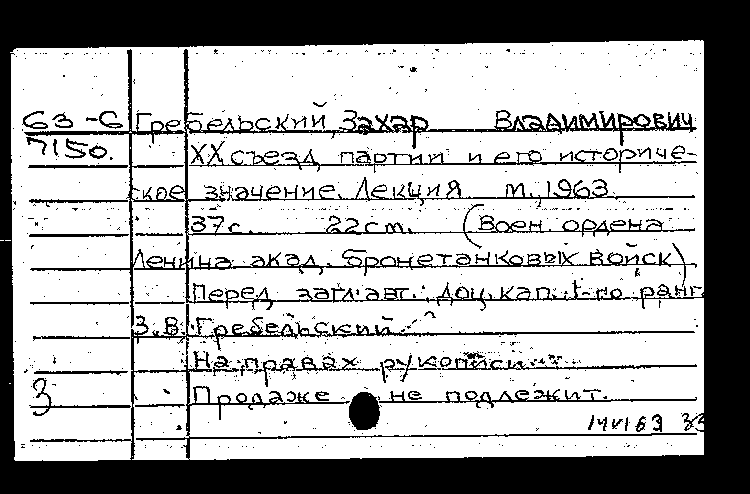 63-6 Гребельский, Захар Владимирович
7150.
XX съезд партии и его историче-
ское значение. Лекция м., 1963
37с. 22cm. (Воен. ордена
Ленина акад. бронетанковых войск)
Перед загл. авт.: доц. кап. 1-го ранг.
З.В. Гребельский
На правах рукописи
3 Продаже не подлежит.